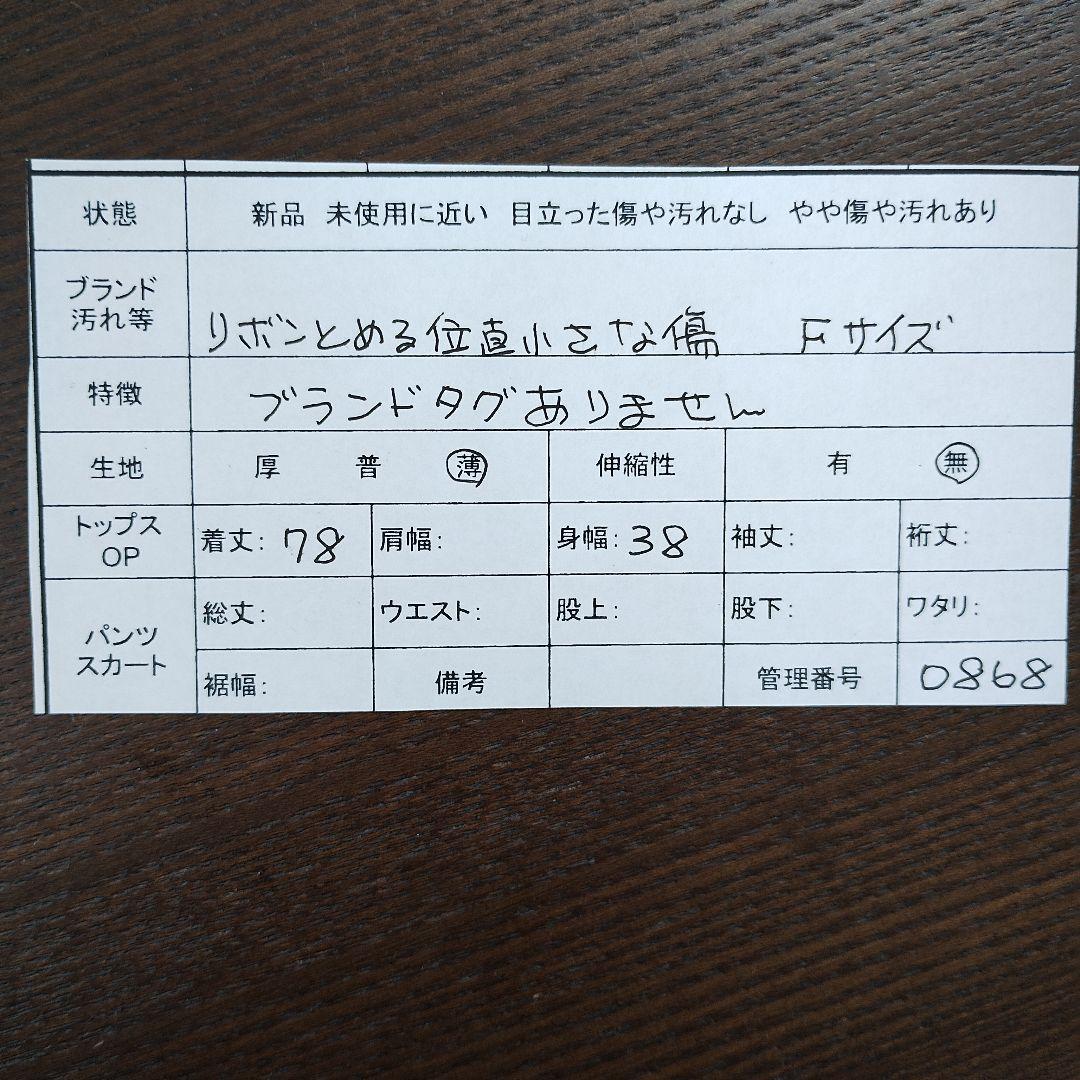 状態 新品 未使用に近い 目立った傷や汚れなし やや傷や汚れあり
ブランド
汚れ等 リボンとめる位直小さな傷 Fサイズ
特徴 ブランドタグありません
生地 厚 普 薄 伸縮性 有 無
トップス
OP 着丈: 78 肩幅: 身幅: 38 袖丈: 裄丈:
パンツ
スカート 総丈: ウエスト: 股上: 股下: ワタリ:
裾幅: 備考 管理番号 0868